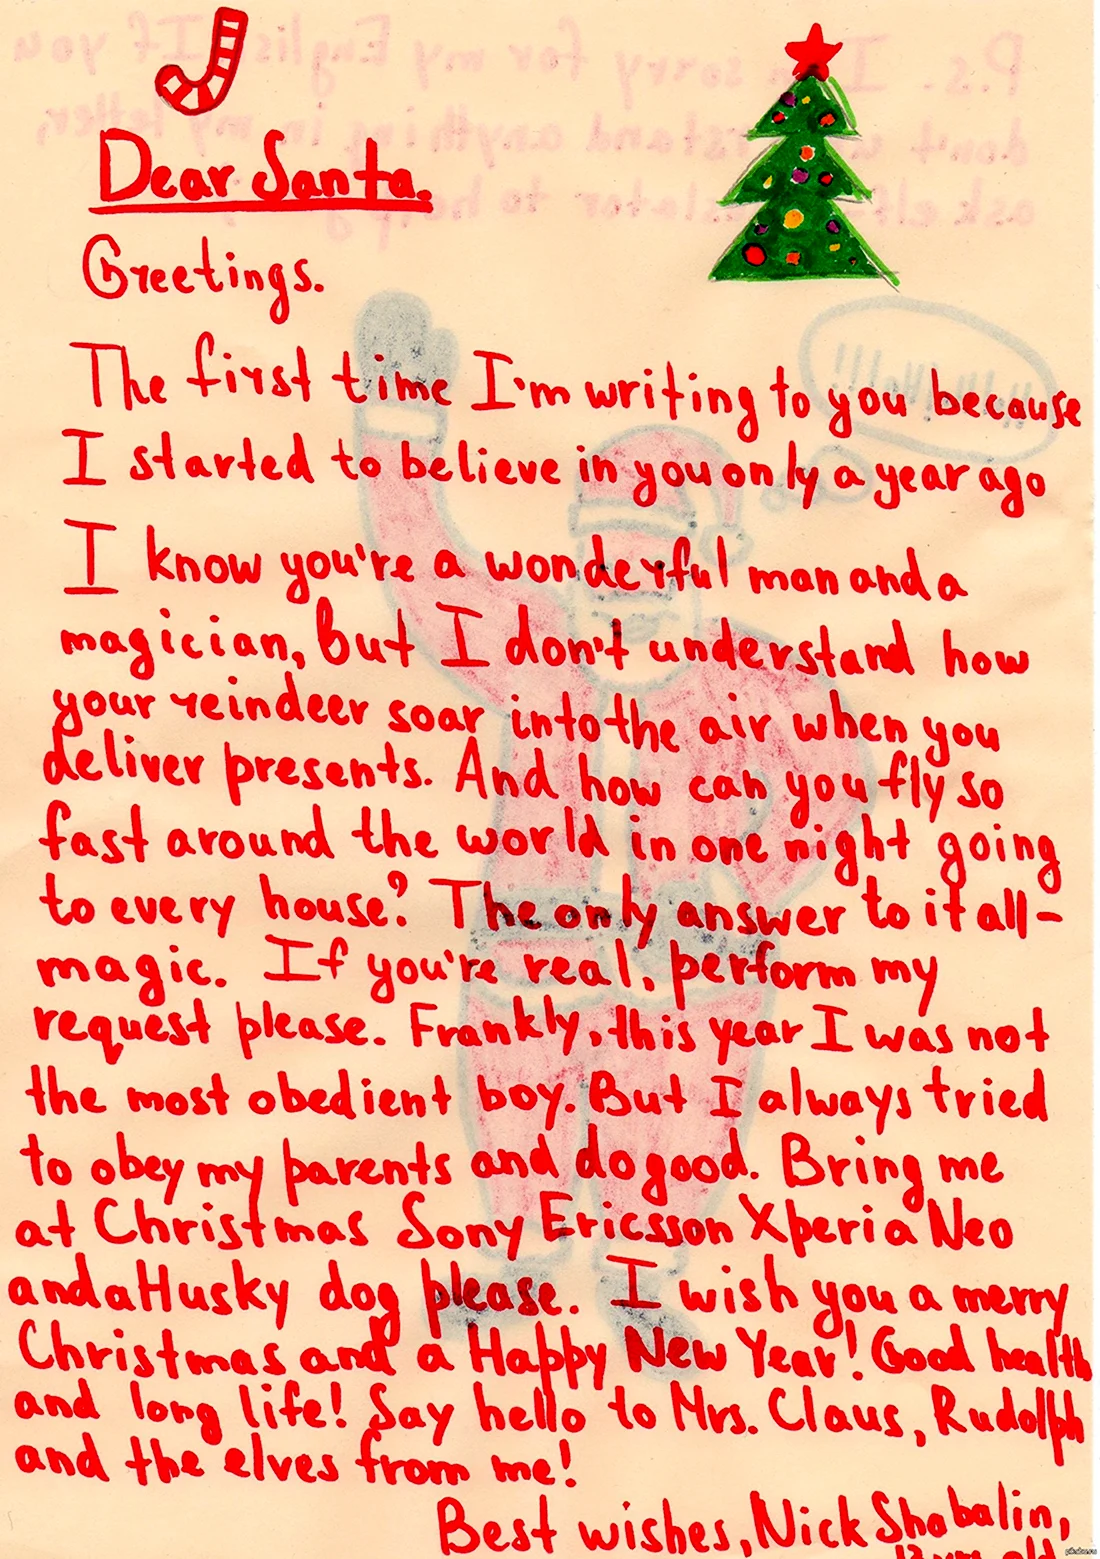 Dear Santa.
Greetings.
The first time I'm writing to you because
I started to believe in you only a year ago
I know you're a wonderful man and a
magician, But I don't understand how
your reindeer soar into the air when you
deliver presents. And how can you fly so
fast around the world in one night going
to every house? The only answer to it all-
magic. If you're real, perform my
request please. Frankly, this year I was not
the most obedient boy. But I always tried
to obey my parents and do good. Bring me
at Christmas Sony Ericsson Xperia Neo
and a Husky dog please. I wish you a merry
Christmas and a Happy New Year! Good health
and long life! Say hello to Mrs. Claus, Rudolph
and the elves from me!
Best wishes, Nick Shabalin,
P.s. I'm sorry for my English. If you
don't understand anything in my letter,
ask elf
pikabu.ru